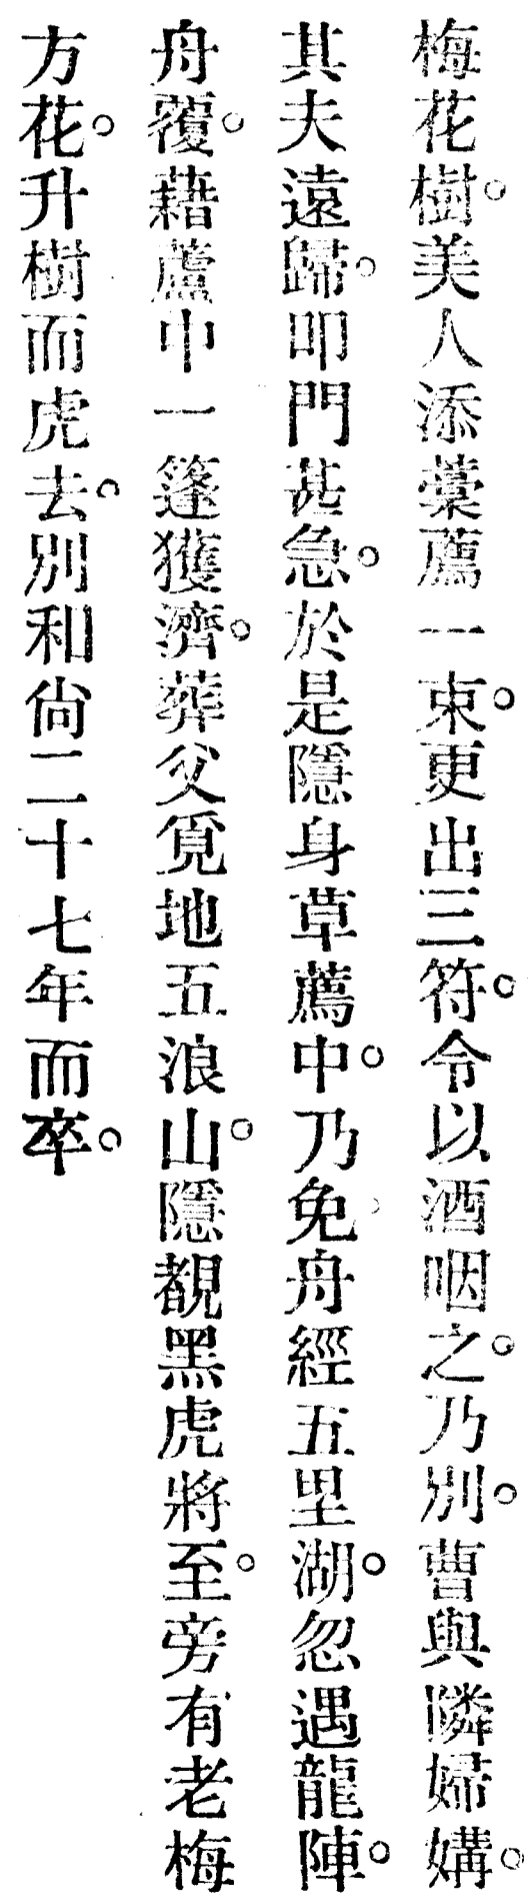 梅花樹。美人添藁薦一束。更出三符。令以酒咽之。乃別。曹與隣婦媾。
其夫遠歸。叩門甚急。於是隱身草薦中。乃免。舟經五里湖。忽遇龍陣。
舟覆。藉蘆中一篷獲濟。葬父覓地五浪山。隱覩黑虎將至。旁有老梅
方花。升樹而虎去。別和尙二十七年而卒。